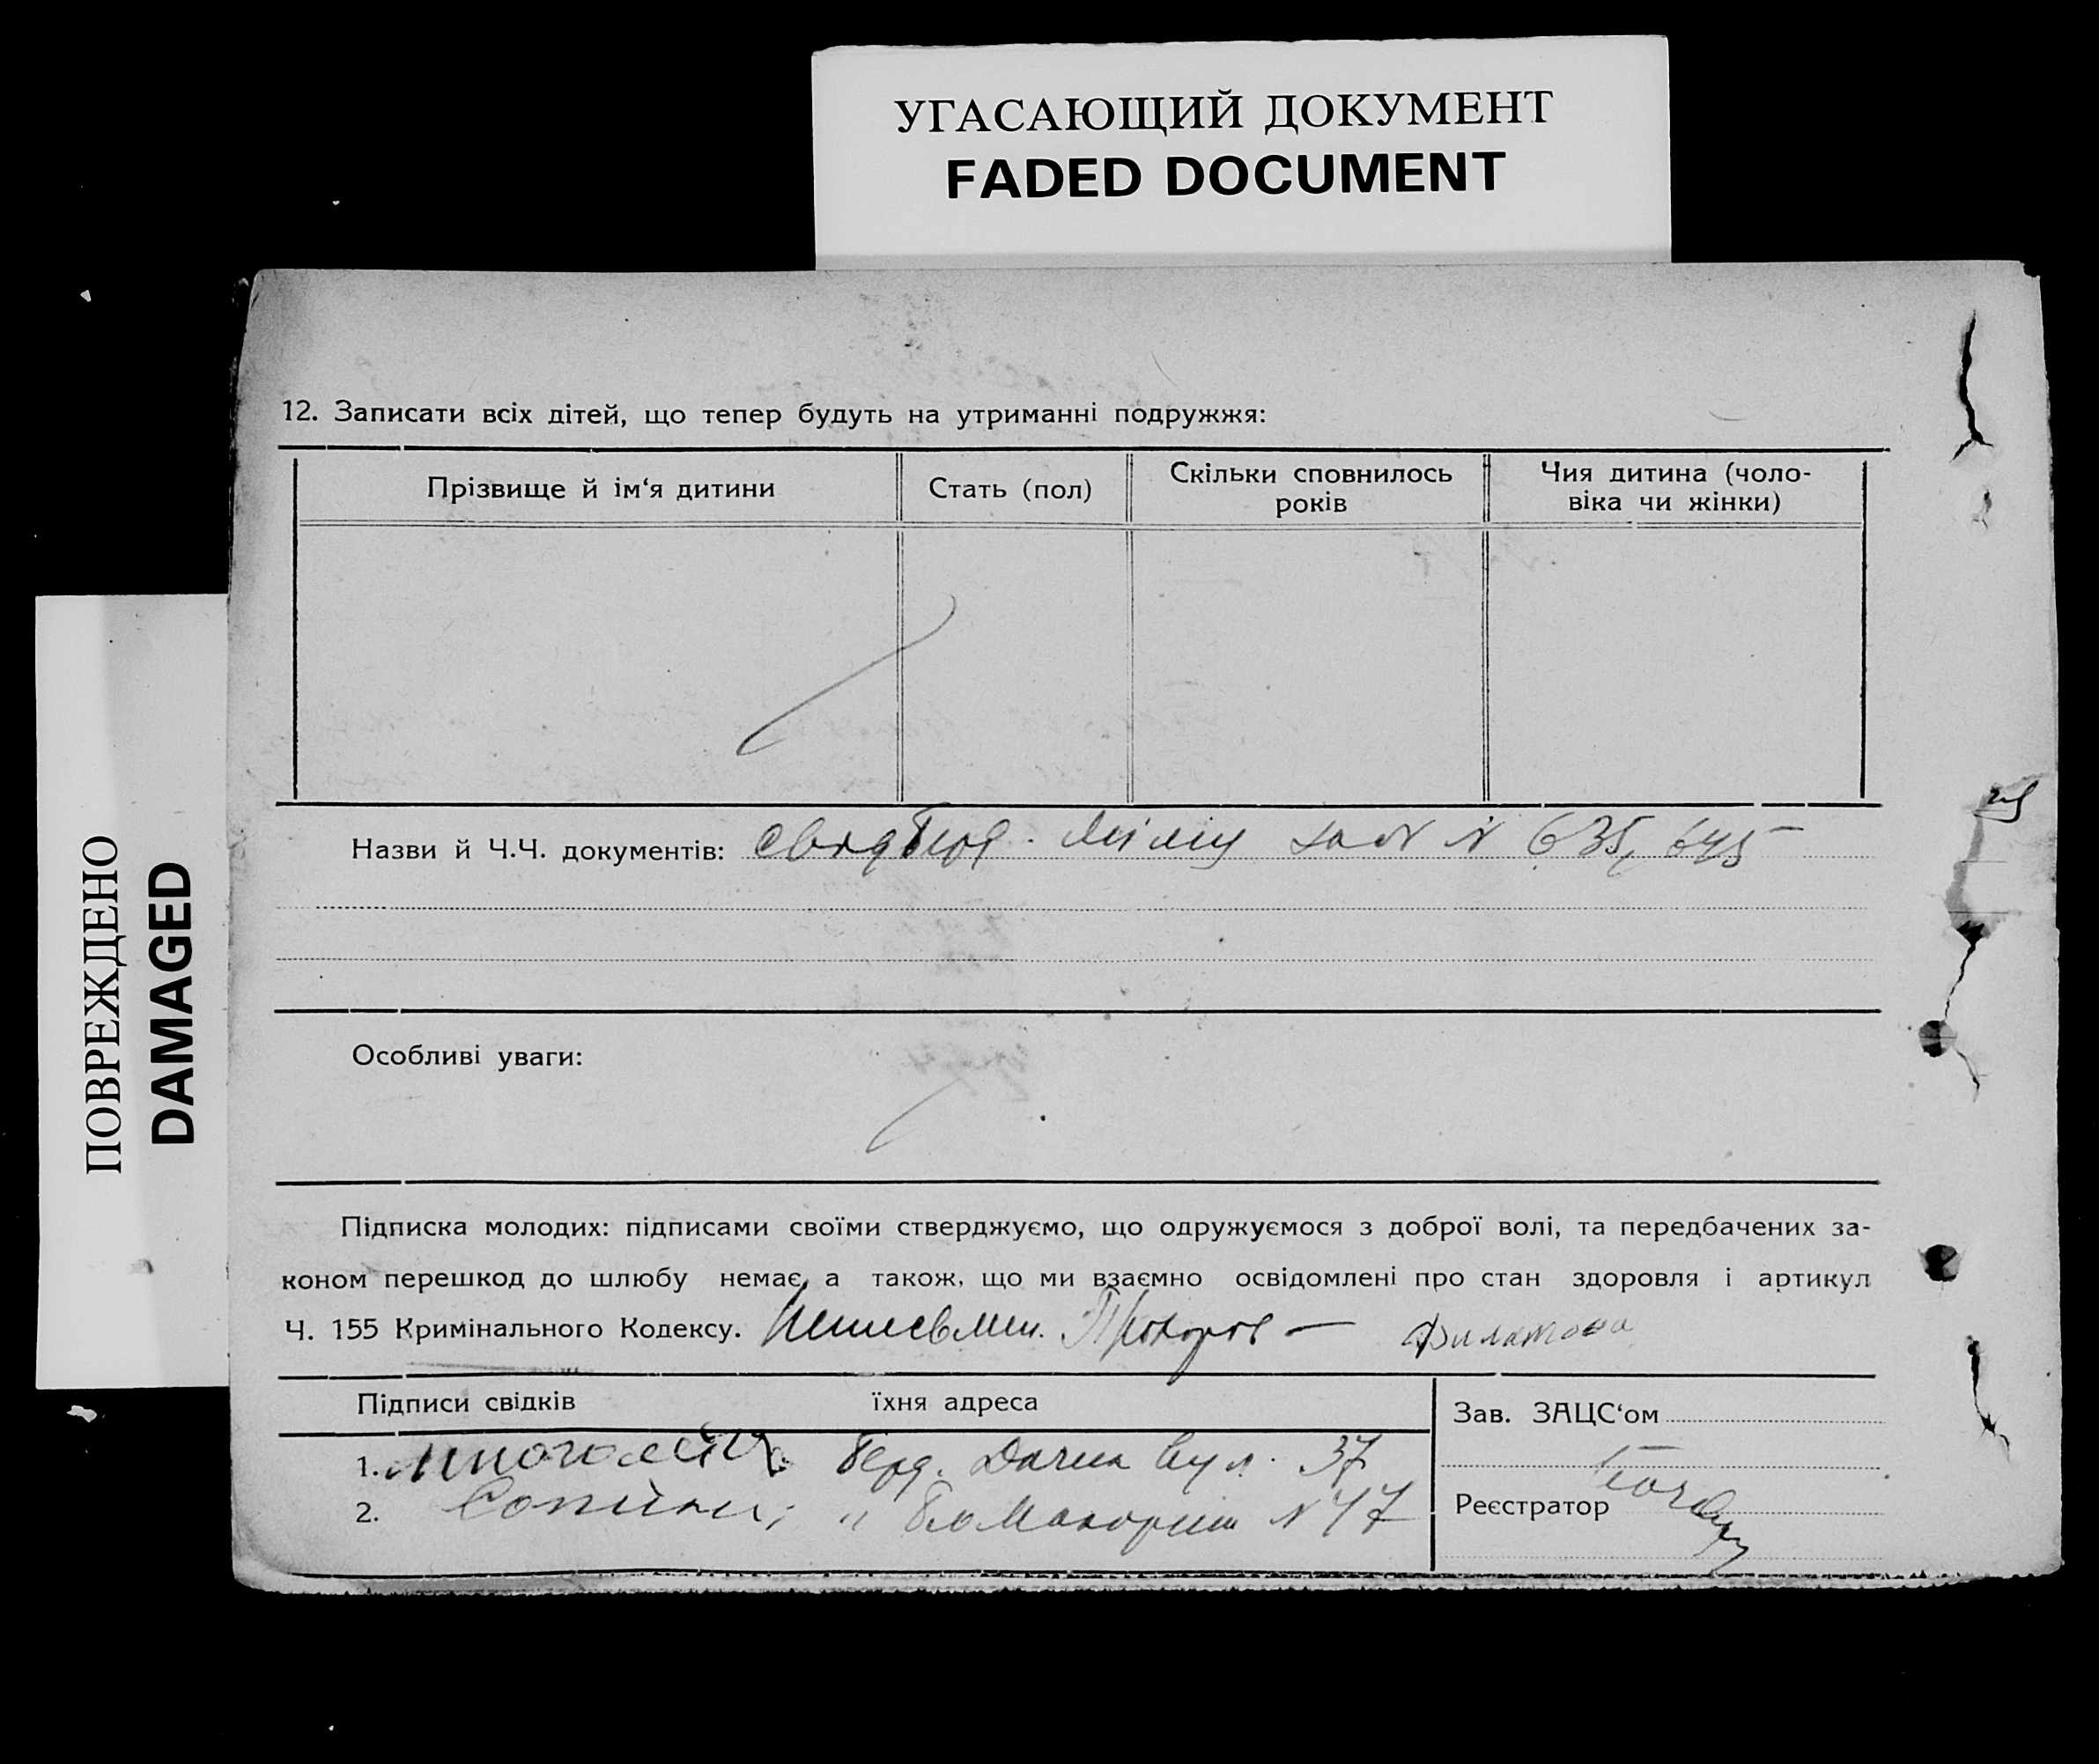 УГАСАЮЩИЙ ДОКУМЕНТ
FADED DOCUMENT
ПОВРЕЖДЕНО
DAMAGED
12. Записати всіх дітей, що тепер будуть на утриманні подружжя:
Прізвище й ім‘я дитини
Стать (пол)
Скільки сповнилось
років
Чия дитина (чоло-
віка чи жінки)
Назви й Ч.Ч. документів: № 635, 645
Особливі уваги:
Підписка молодих: підписами своїми стверджуємо, що одружуємося з доброї волі, та передбачених за-
коном перешкод до шлюбу немає, а також, що ми взаємно освідомлені про стан здоровля і артикул
Ч. 155 Кримінального Кодексу. Прохоров — Филатова
Підписи свідків їхня адреса
1. Берд. Дачна вул. 37
2. " № 47
Зав. ЗАЦС‘ом
Реєстратор